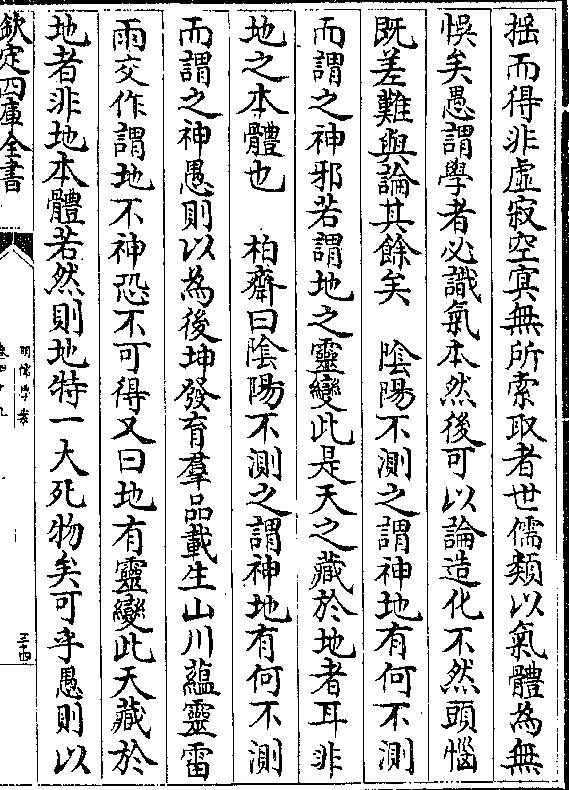 揺而得非虚寂空㝠無所索取者世儒類以氣體為無
悞矣愚謂學者必識氣本然後可以論造化不然頭惱
既差難與論其餘矣　隂陽不測之謂神地有何不測
而謂之神邪若謂地之靈變此是天之藏於地者耳非
地之本體也　栢齋曰隂陽不測之謂神地有何不測
而謂之神愚則以為後坤發育羣品載生山川藴靈雷
雨交作謂地不神恐不可得又曰地有靈變此天藏於
地者非地本體若然則地特一大死物矣可乎愚則以
欽定四庫全書
明儒學案
卷四十九
三十四